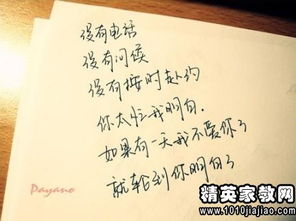 没有电话
没有问候
没有按时赴约
你太忙我明白.
如果有一天我不爱你了
就轮到你明白了
Payano
精英家教网
www.1010jiajiao.com